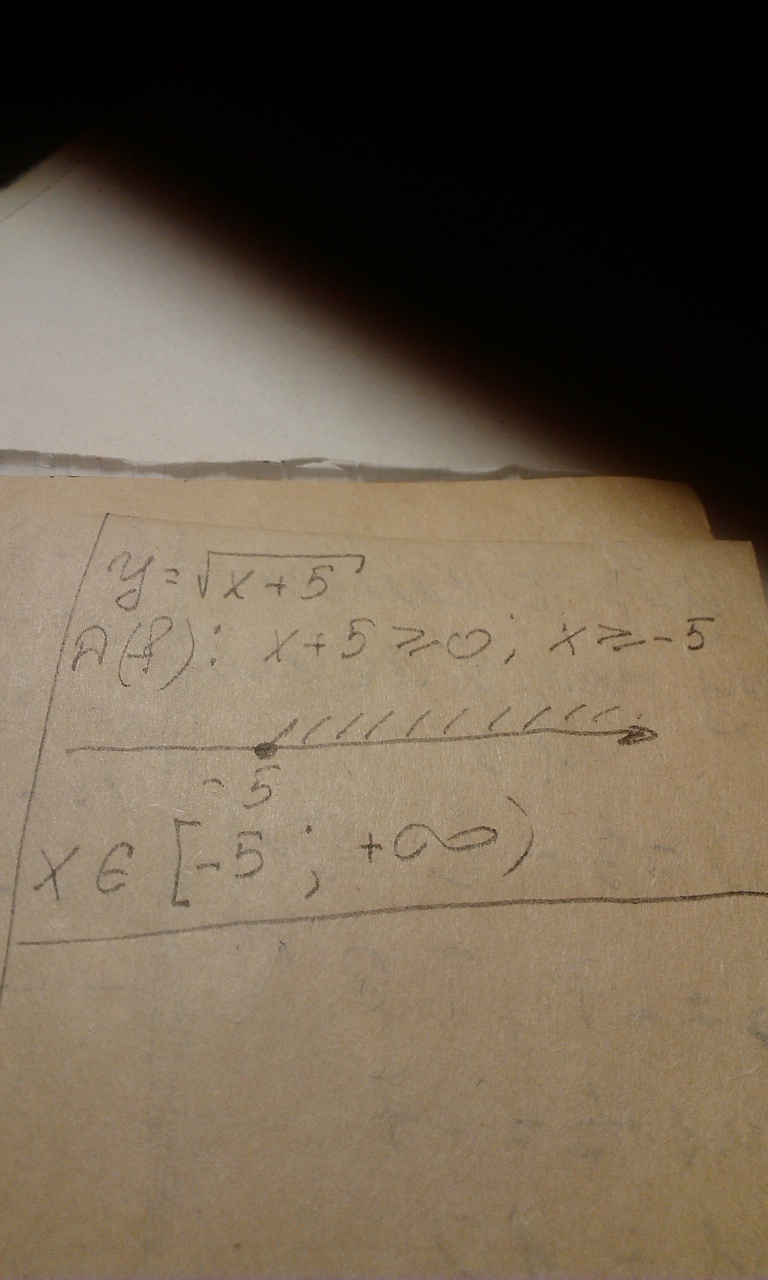 y=√x+5
D(f): x+5≥0; x≥-5
-5
x∈[-5; +∞)